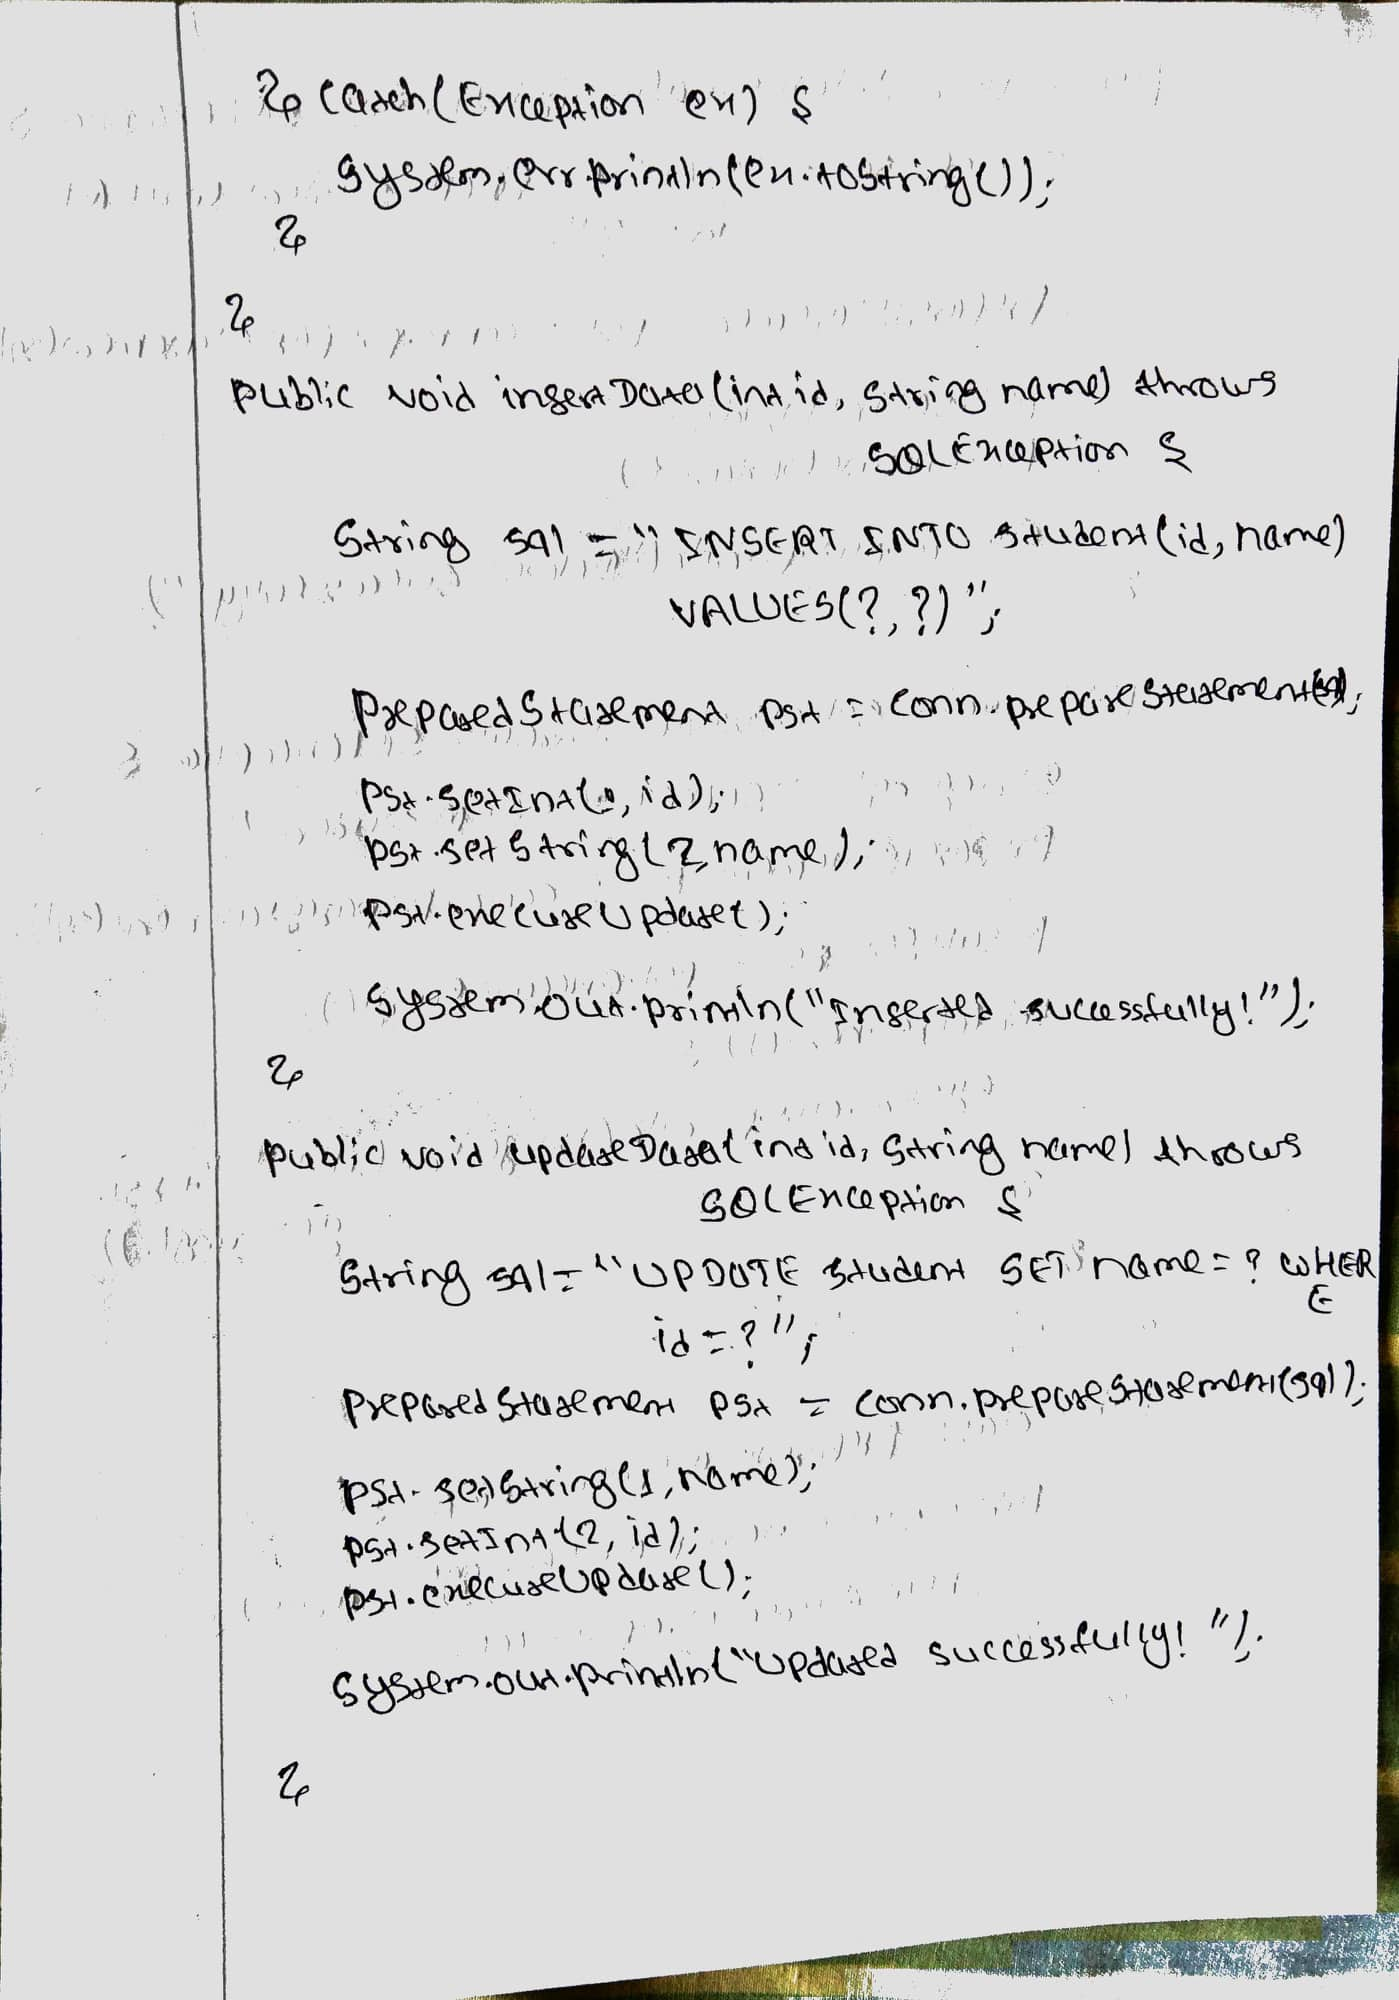 } catch (Exception ex) {
System.err.println(ex.toString());
}
}
public void insertData(int id, String name) throws
SQLException {
String sql = "INSERT INTO student(id, name)
VALUES(?, ?)";
PreparedStatement pst = conn.prepareStatement(sql);
pst.setInt(1, id);
pst.setString(2, name);
pst.executeUpdate();
System.out.println("Inserted successfully!");
}
public void updateData(int id, String name) throws
SQLException {
String sql = "UPDATE student SET name = ? WHER
E
id = ?";
PreparedStatement pst = conn.prepareStatement(sql);
pst.setString(1, name);
pst.setInt(2, id);
pst.executeUpdate();
System.out.println("Updated successfully!");
}